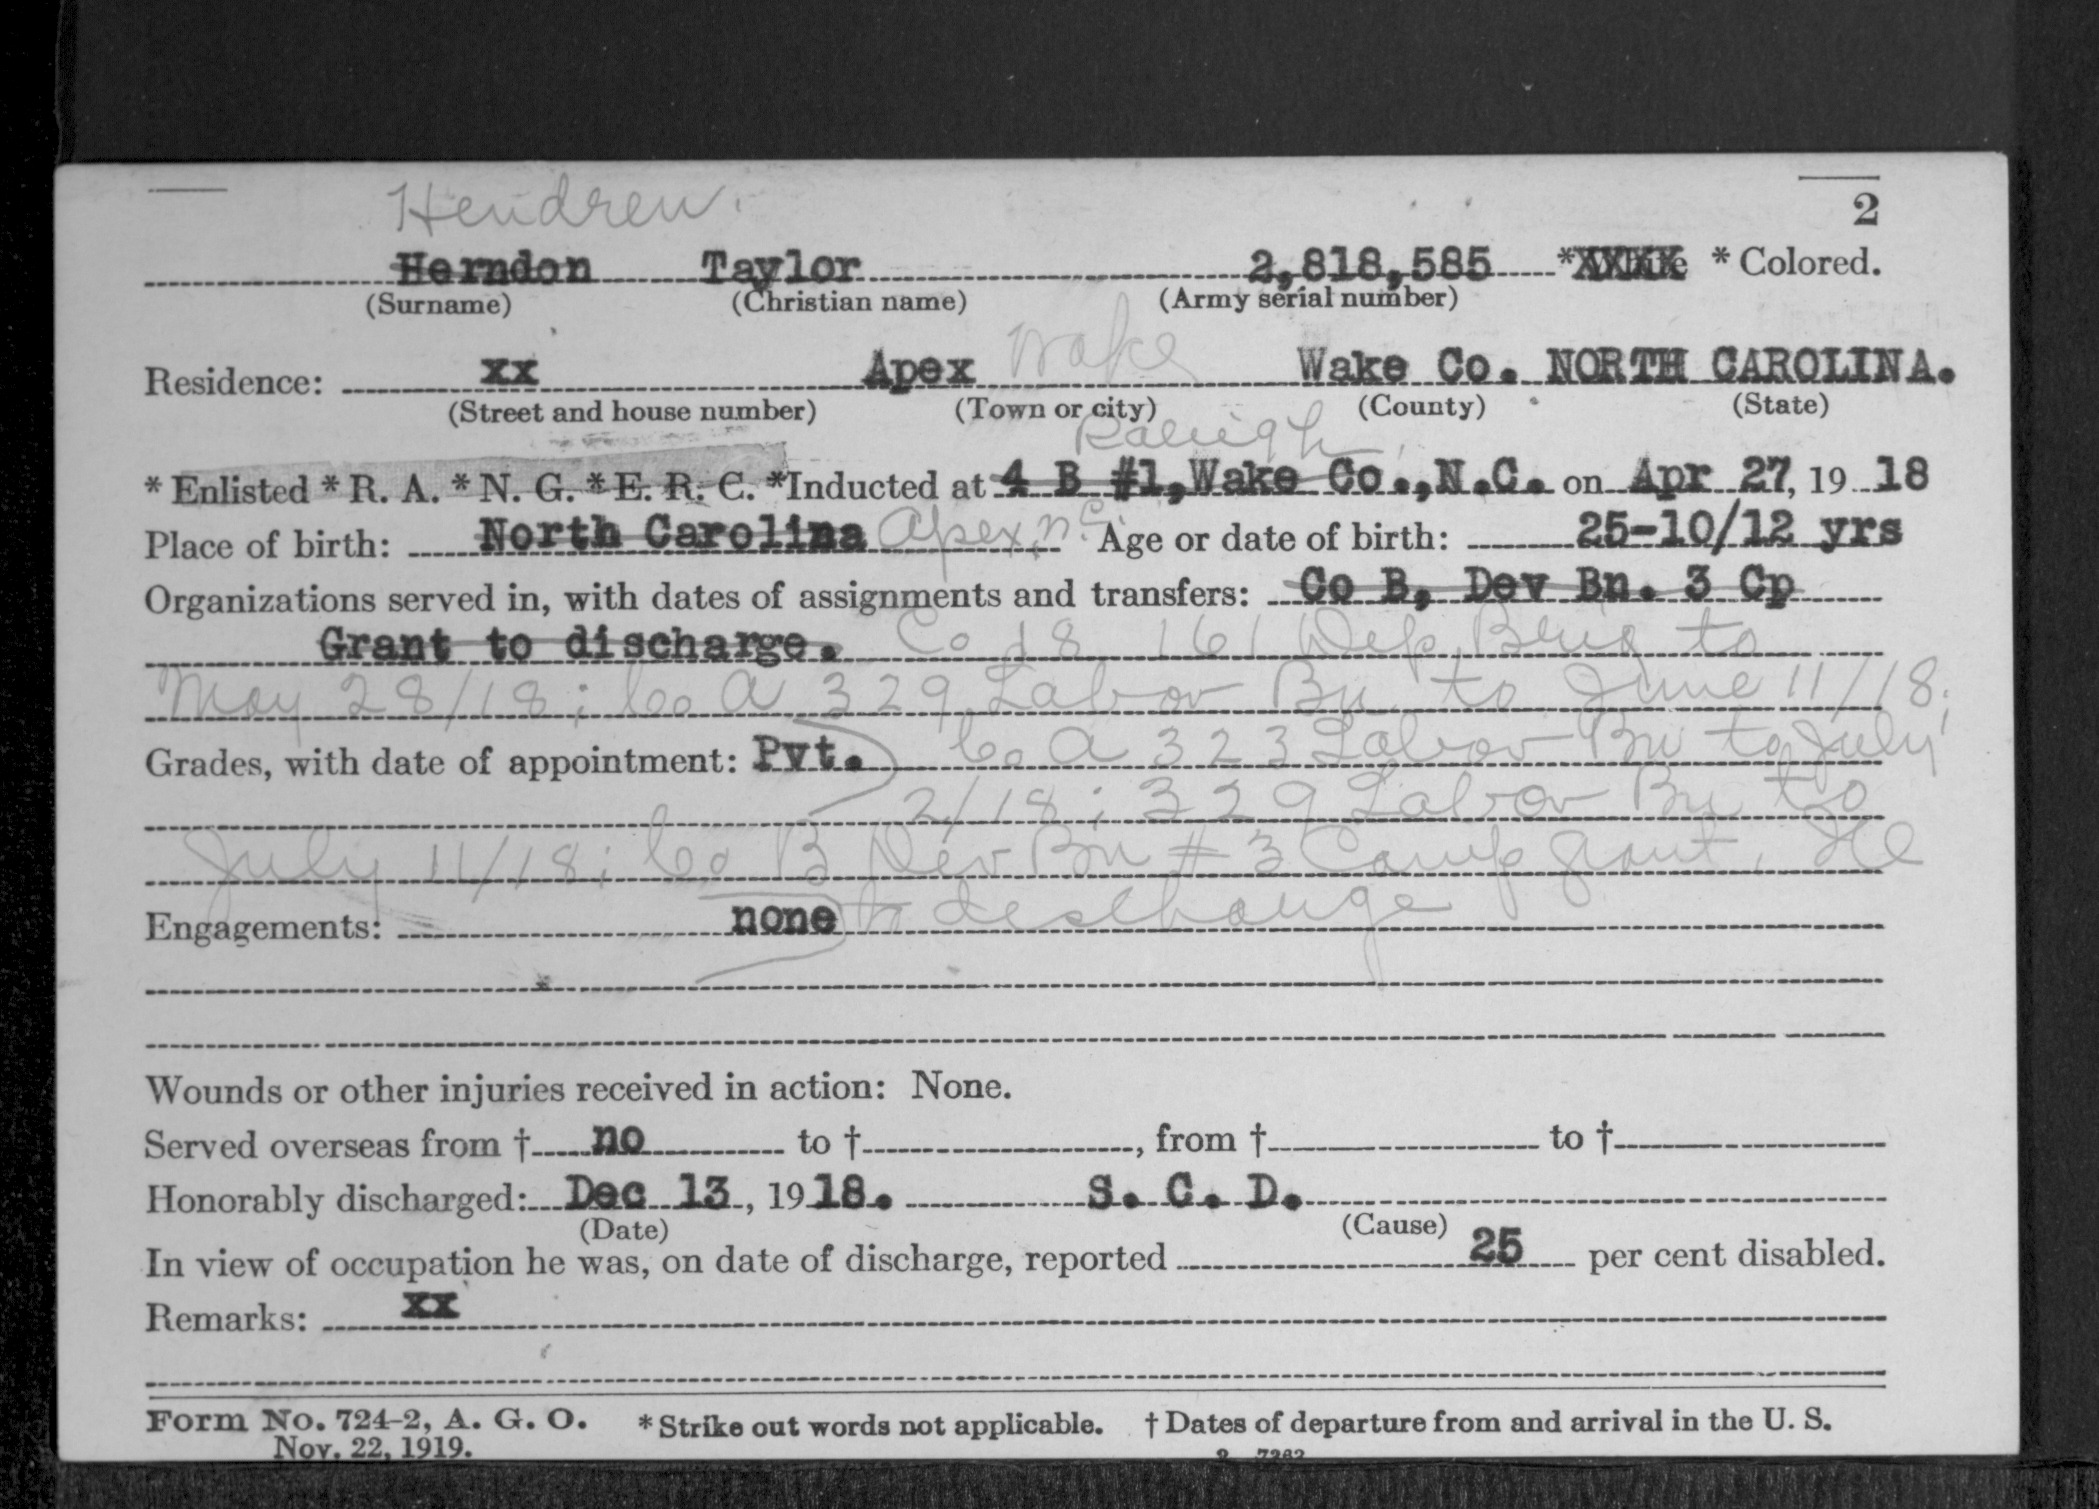 Hendren.
2
Herndon Taylor 2,818,585 *XXXX * Colored.
(Surname) (Christian name) (Army serial number)
Wake
Residence: xx Apex Wake Co. NORTH CAROLINA.
(Street and house number) (Town or city) (County) (State)
Raleigh
* Enlisted * R. A. * N. G. * E. R. C. *Inducted at 4 B #1, Wake Co., N.C. on Apr 27, 19 18
Place of birth: North Carolina Apex, N.C. Age or date of birth: 25-10/12 yrs
Organizations served in, with dates of assignments and transfers: Co B, Dev Bn. 3 Cp
Grant to discharge. Co 18 161 Dep Brig to
May 28/18; Co A 329 Labor Bn to June 11/18;
Grades, with date of appointment: Pvt. Co A 323 Labor Bn to July
2/18; 329 Labor Bn to
July 11/18; Co B Dev Bn #3 Camp Grant, Ill
Engagements: none to discharge
Wounds or other injuries received in action: None.
Served overseas from † no to † , from † to †
Honorably discharged: Dec 13, 19 18. S. C. D.
(Date) (Cause)
In view of occupation he was, on date of discharge, reported 25 per cent disabled.
Remarks: xx
Form No. 724-2, A. G. O. * Strike out words not applicable. † Dates of departure from and arrival in the U. S.
Nov. 22, 1919.